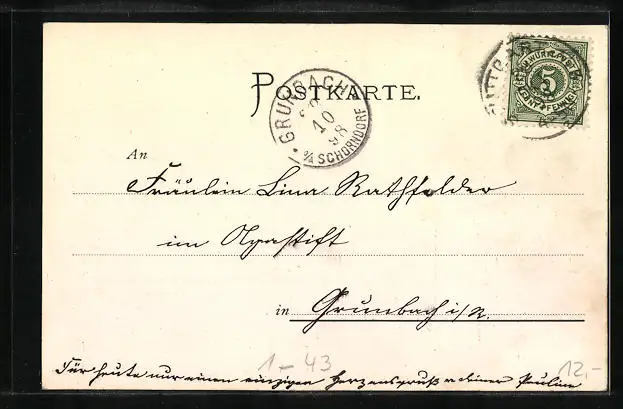 POSTKARTE.
K. WÜRTT. POST
5
FÜNF PFENNIG
STUTTGART
GRUNBACH
10
98
O/A SCHORNDORF
An
Fräulein Lina Rathfelder
im
in Grunbach i/R.
1-43
12,-
Für heute nur einen einzigen Herzensgruß v. deiner Pauline